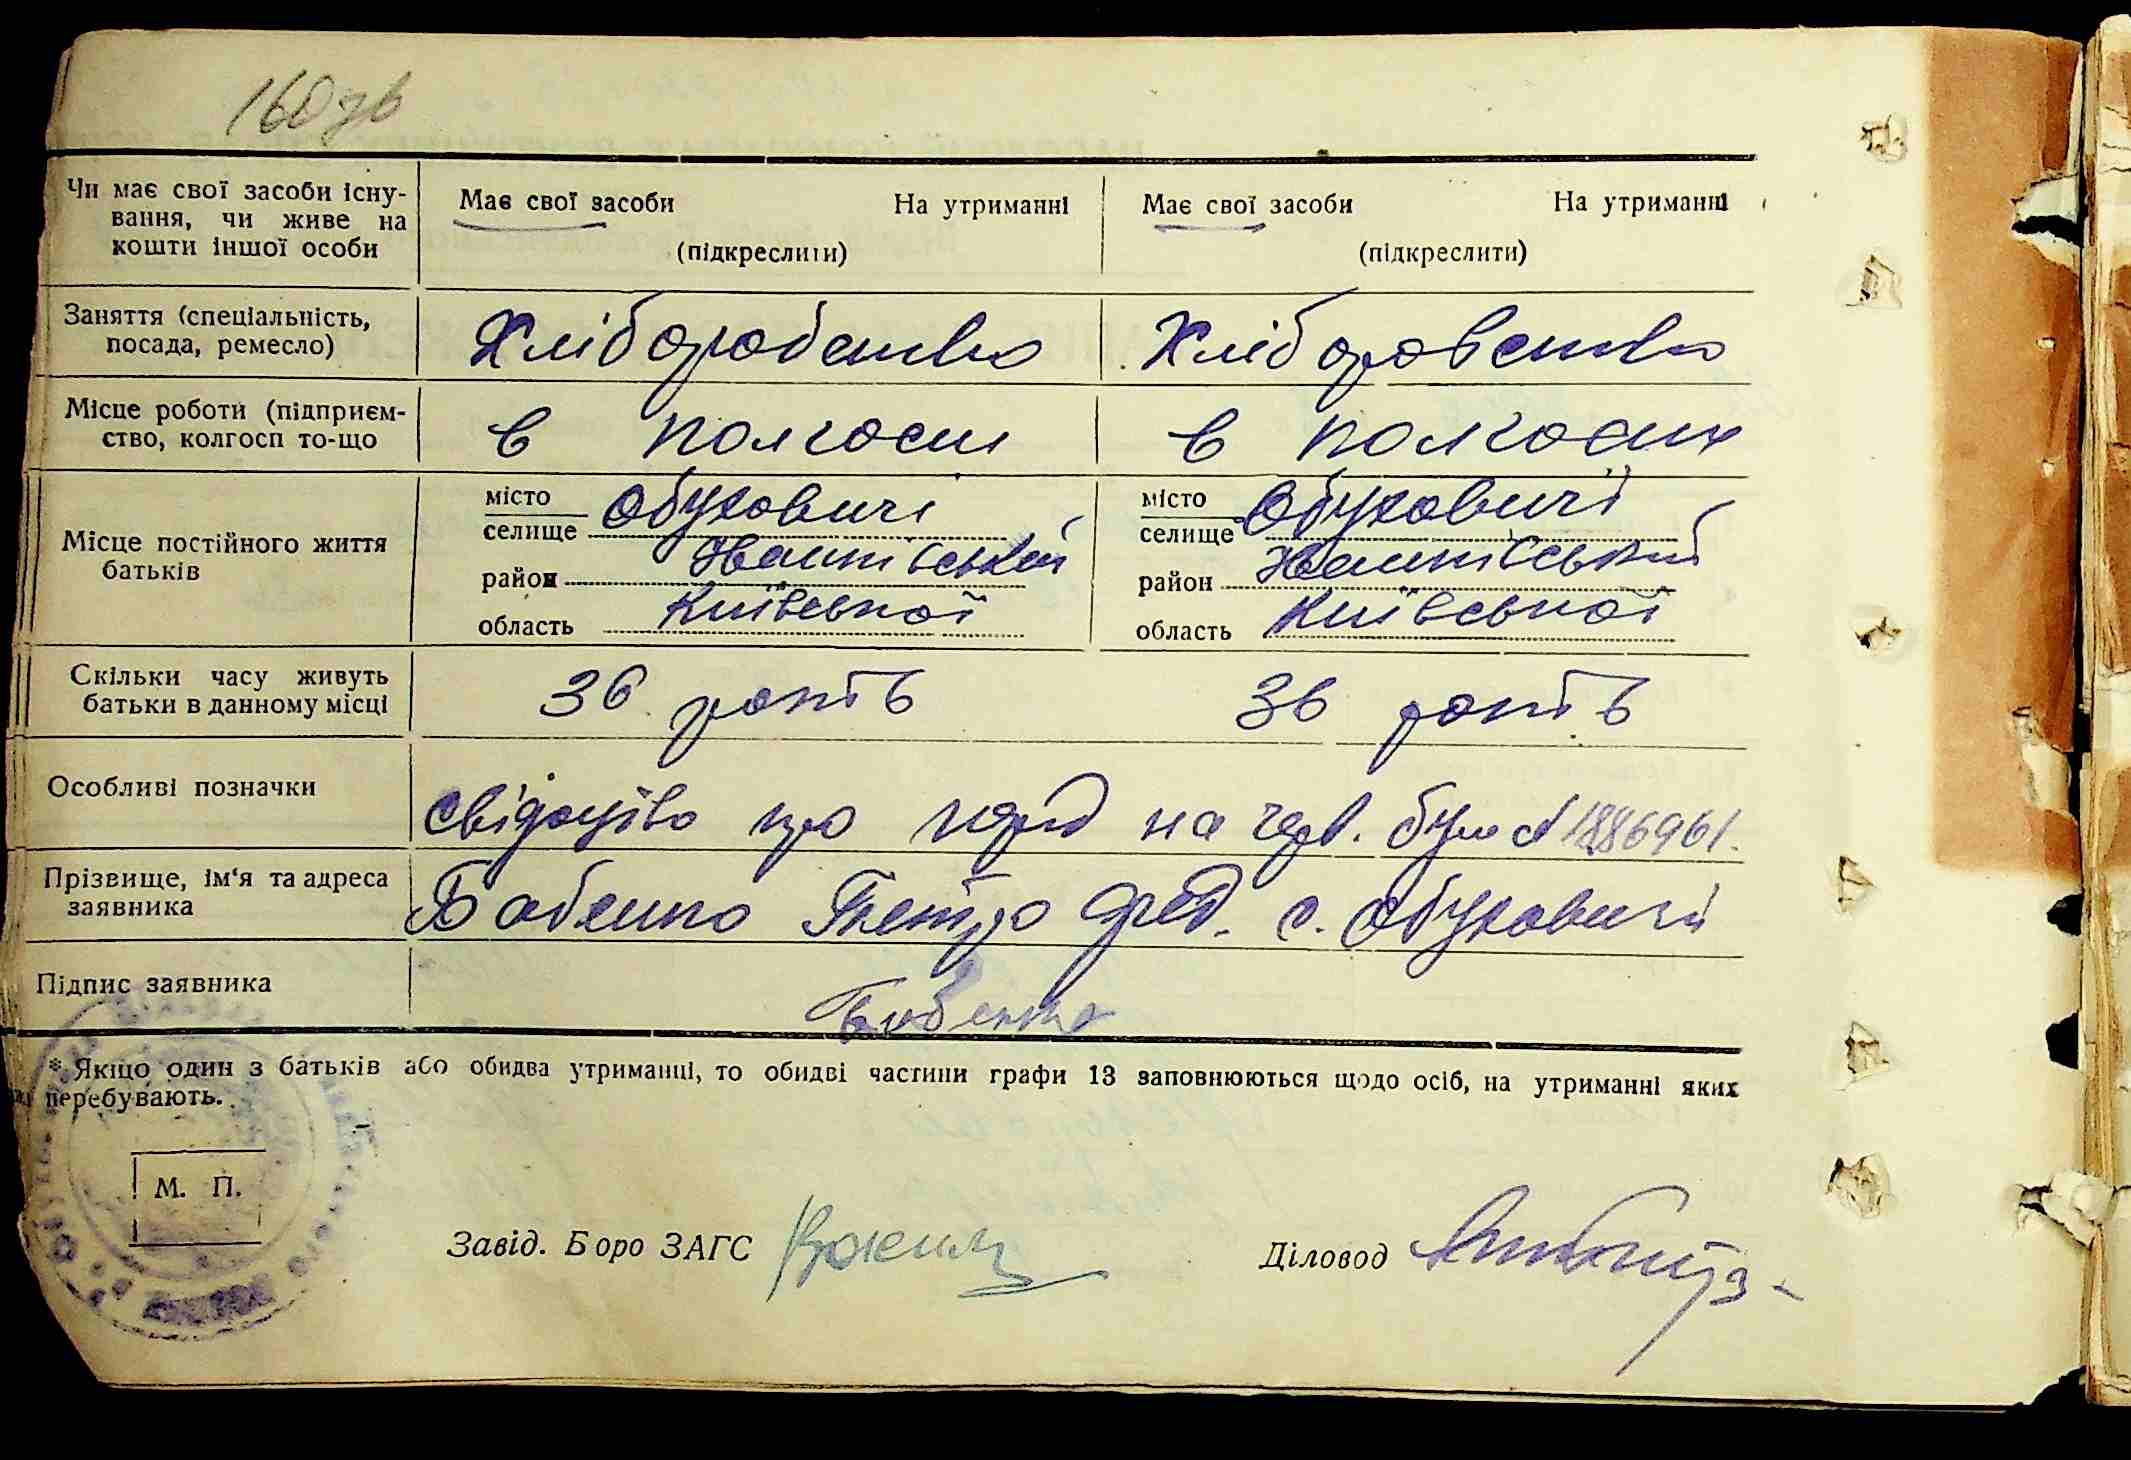 160 зв
Чи має свої засоби існу-
вання, чи живе на
кошти іншої особи
Має свої засоби На утриманні
(підкреслити)
Має свої засоби На утриманні
(підкреслити)
Заняття (спеціальність,
посада, ремесло)
Хліборобство
Хліборобство
Місце роботи (підприєм-
ство, колгосп то-що
в колгоспі
в колгоспі
Місце постійного життя
батьків
місто
селище Обуховичі
район Іванківський
область Київської
місто
селище Обуховичі
район Іванківський
область Київської
Скільки часу живуть
батьки в данному місці
36 років
36 років
Особливі позначки
про на 1886961.
Прізвище, ім'я та адреса
заявника
Бабенко Петро с. Обуховичі
Підпис заявника
Бабенко
* Якщо один з батьків або обидва утриманці, то обидві частини графи 13 заповнюються щодо осіб, на утриманні яких
перебувають.
М. П.
Завід. Боро ЗАГС
Діловод